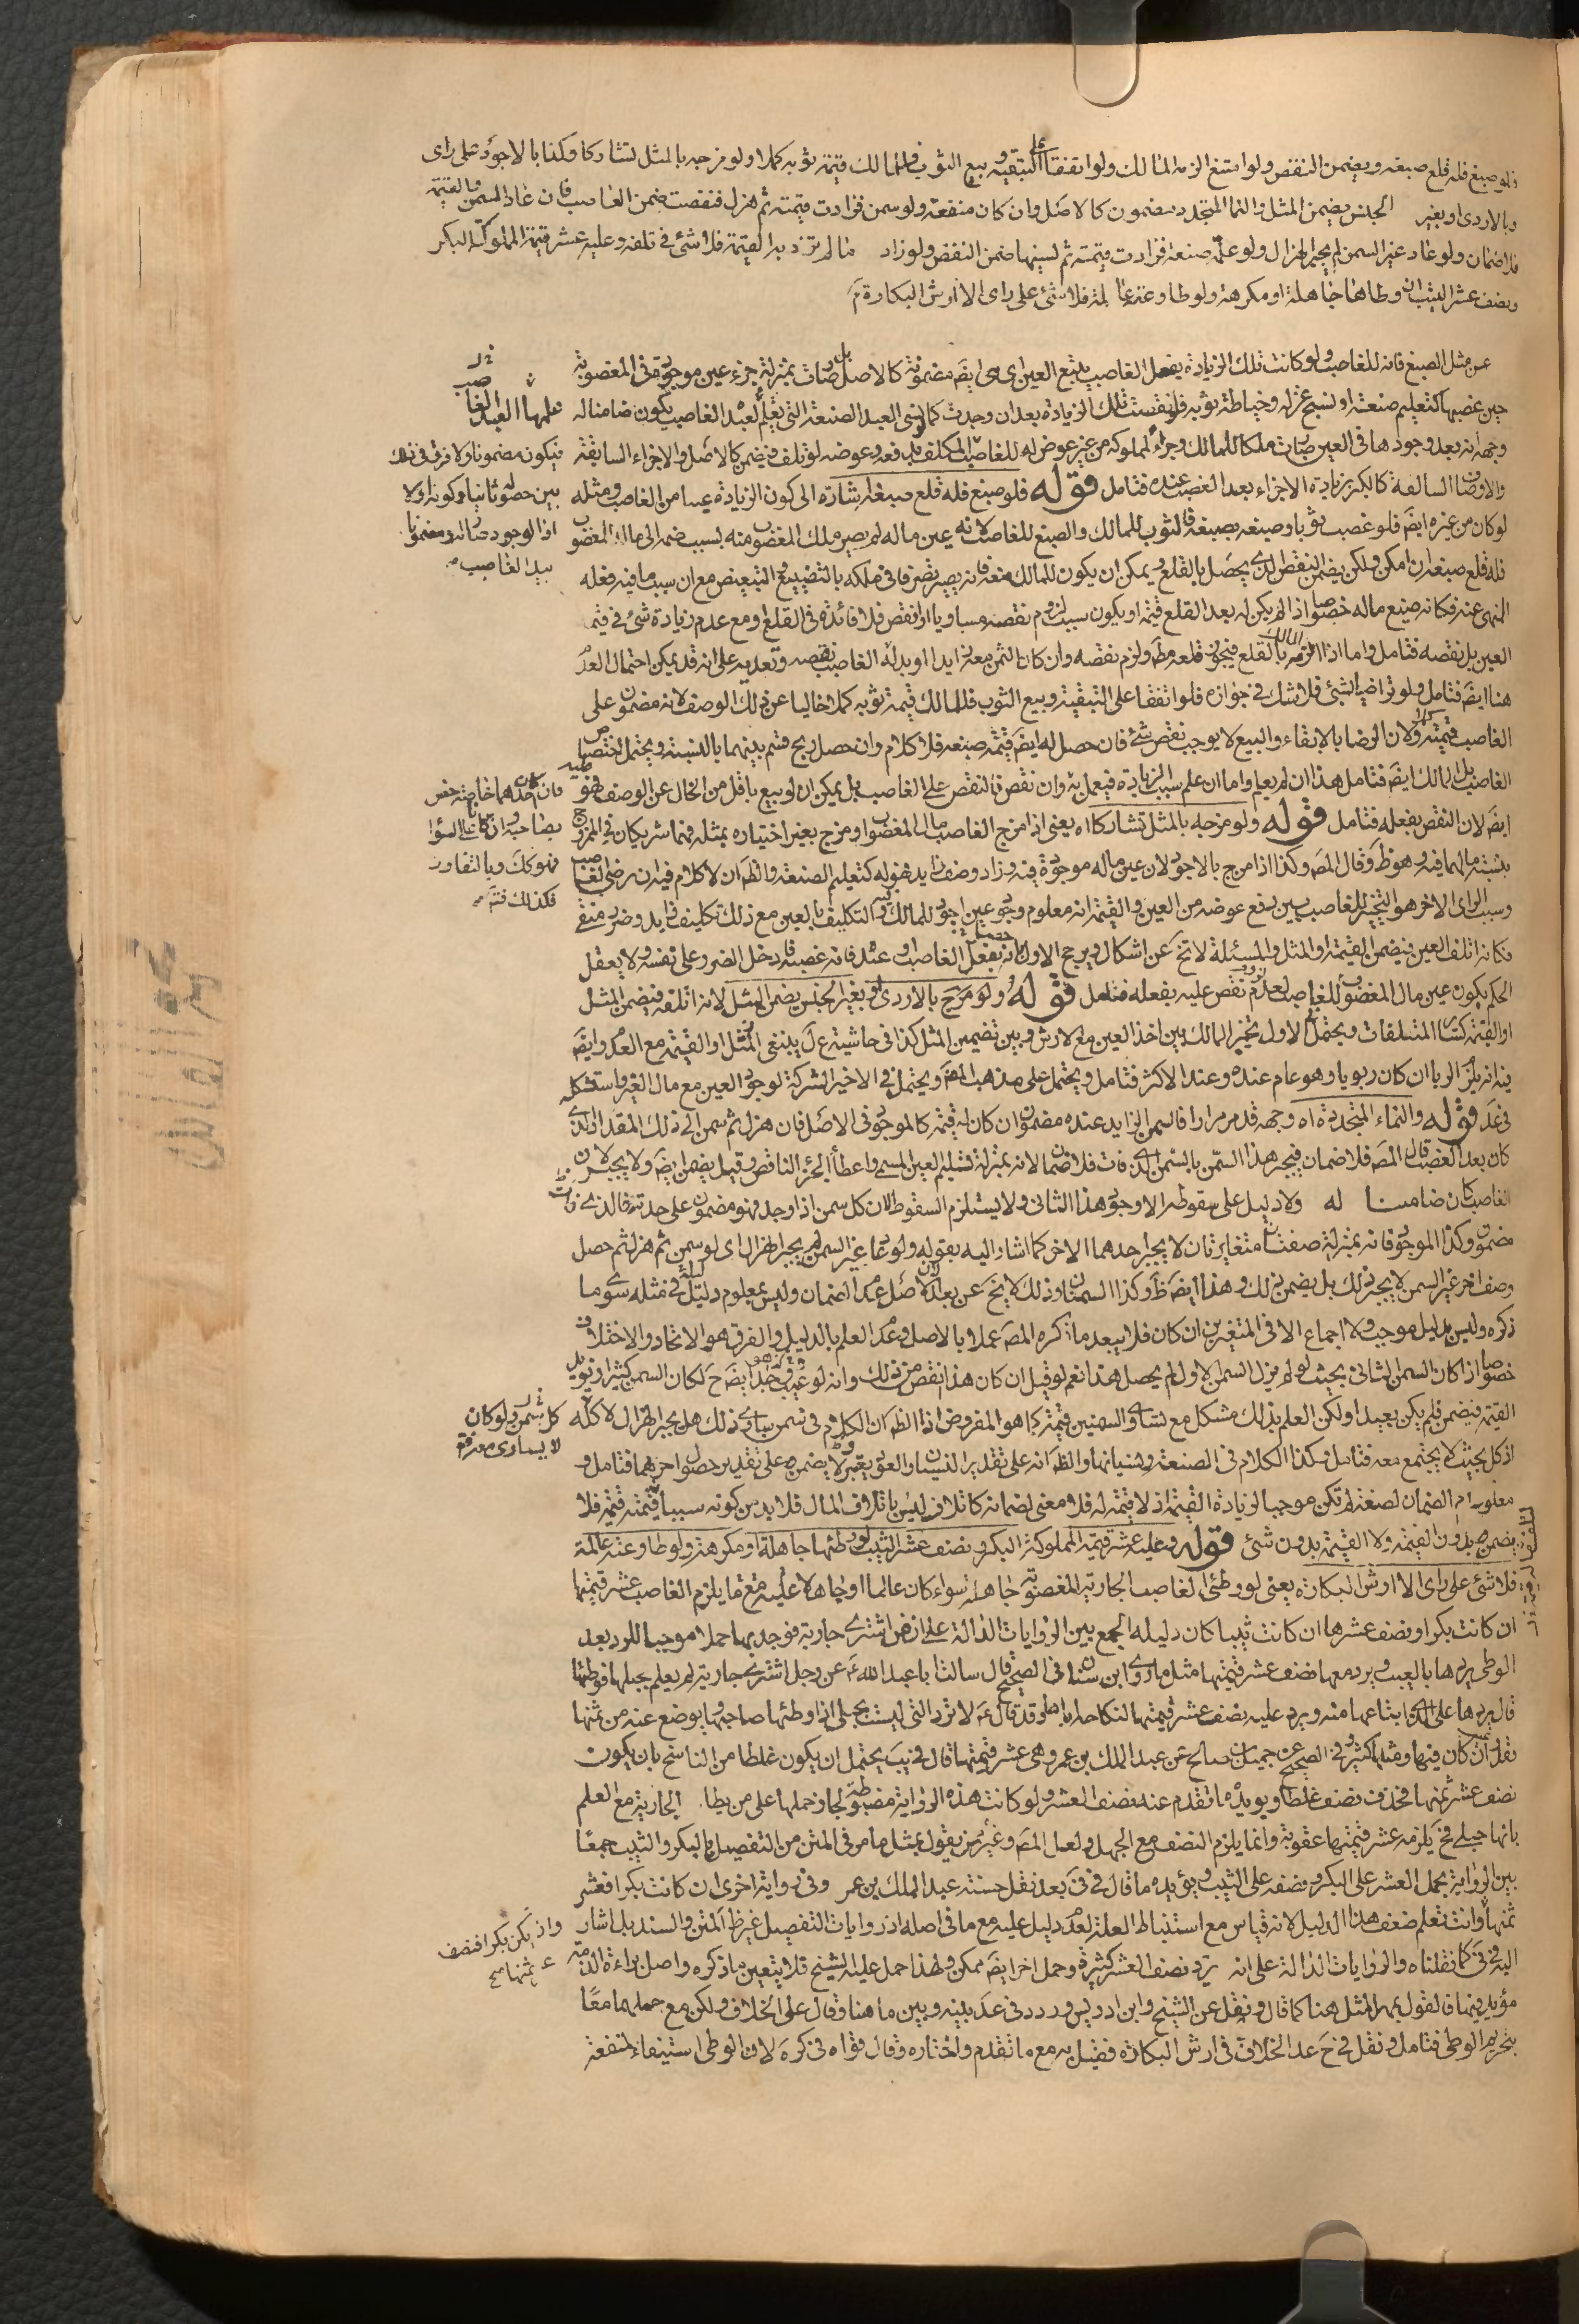 فلو صبغ فله قلع صبغه ويضمن النقص ولو امتنع الزمه المالك ولو اتفقا على التبقية وبيع الثوب فللمالك قيمة ثوبه كملا ولو مزجه بالمثل تشاركا وكذا بالاجود على راى
وبالاردى او بغير الجنس يضمن المثل والنما المتجدد مضمون كالاصل وان كان منفعة ولو سمن فزادت قيمته ثم هزل فنقصت ضمن الغاصب فان عاد السمن والقيمة
فلا ضمان ولو عاد غير السمن لم يجبر الهزال ولو علمه صنعة فزادت قيمته ثم نسيها ضمن النقص ولو زاد مالم تزد به القيمة فلا شئ فى تلفه وعليه عشر قيمة المملوكة البكر
ونصف عشر الثيب ان وطاها جاهلة او مكرهة ولو طاوعته عالمة فلا شئ على راى الا ارش البكارة
عن مثل الصبغ فانه للغاصب ولو كانت تلك الزيادة بفعل الغاصب يتبع العين اى هى ايضَ مضمونة كالاصل بل صارت بمنزلة جزء عين موجودة فى المغصوبة
حين غصبها كتعليم صنعة او نسج غزله وخياطة ثوبه فلو نقصت تلك الزيادة بعد ان وجدت كما نسى العبد الصنعة التى تعلم العبد الغاصب يكون ضامنا له
وجهه انه بعد وجودها فى العين صارت ملكا للمالك وجزءً لمملوكه من غير عوض له للغاصب المكلف بدفعه وعوضه لو تلف فيضمن كالاصل والاجزاء السابقة
والاوصاف السالفة كالبكر بزيادة الاجزاء بعد الغصب عنده فتامل قوله فلو صبغ فله قلع صبغه اشارة الى كون الزيادة عينا من الغاصب ومثله
لو كان من غيره ايضَ فلو غصب ثوبا وصبغه بصبغه فالثوب للمالك والصبغ للغاصب لانه عين ماله لم يصر ملك المغصوب منه بسبب ضمه الى مال المغصوب
فله قلع صبغه ان امكن ولكن يضمن النقص الذى يحصل بالقلع ويمكن ان يكون للمالك منعه فانه يصير تصرفا فى ملكه بالتضييع والتبعيض مع ان سبب ما فيه فعله
المنهى عنه فكانه ضيع ماله خصوصا اذا لم يكن له بعد القلع قيمة او يكون سبب لزوم نقصه مساويا او انقص فلا فائدة فى القلع او مع عدم زيادة شئ فى قيمة
العين بل نقصه فتامل واما اذا الزمه المالك بالقلع فيجوز قلعه مطَ ولزم نقصه وان كان الثمن معه زايدا او بدله الغاصب نقصه وتعديه على انه قد يمكن احتمال العدم
هنا ايضَ فتامل ولو تراضيا لشئ فلا شك فى جوازه فلو اتفقا على التبقية وبيع الثوب فللمالك قيمة ثوبه كملا خاليا عن ذلك الوصف لانه مضمون على
الغاصب قيمته ولان الرضا بالابقاء والبيع لا يوجب نقص شئ فان حصل له ايضَ قيمة صبغه فلا كلام وان حصل ربح قسم بينهما بالنسبة ويحتمل اختصاص
الغاصب بل المالك ايضَ فتامل هذا ان لم يعلم واما ان علم سبب الزيادة فيعمل به وان نقص فالنقص على الغاصب بل يمكن ان لو بيع باقل من الخال عن الوصف فهو
ايضَ لان النقص بفعله فتامل قوله ولو مزجه بالمثل تشاركا اه يعنى اذا مزج الغاصب مال المغصوب او مزج بغير اختياره بمثله فهما شريكان فى الممزوج
بنسبة ماليهما فيه وهو ظَ وقال المصَ وكذا اذا مزج بالاجود لان عين ماله موجودة فيه وزاد وصف زايد فهو له كتعليم الصنعة والظَ ان لا كلام فيه ان رضى الغاصب
وسبب الراى الاخر هو التخيير للغاصب بين دفع عوضه من العين والقيمة انه معلوم وجود عين اجود للمالك التكليف بالعين مع ذلك تكليف زايد وضرر منفى
فكانه اتلف العين فيضمن القيمة او المثل والمسئلة لا تخ عن اشكال ويرجح الاول كونه بفعل الغاصب وعنده فانه غصبه فادخل الضرر على نفسه ولا يعقل
الحكم بكون عين مال المغصوب للغاصب لعدم لزوم نقص عليه بفعله فتامل قوله ولو مزج بالاردى او بغير الجنس يضمن المثل لانه اتلفه فيضمن المثل
او القيمة كسائر المتلفات ويحتمل الاول تخيير المالك بين اخذ العين مع الارش وبين تضمين المثل كذا فى حاشية عَلَ ينبغى المثل او القيمة مع العدم وايضَ
فيه انه يلزم الربا ان كان ربويا وهو عام عنده وعند الاكثر فتامل ويحتمل على مذهب المصَ ويحتمل فى الاخير الشركة لوجود العين مع مال الغير واستشكله
فى عَدَ قوله والنماء المتجدد اه وجهه قد مر مرارا فالسمن الزايد عنده مضمون ان كان له قيمة كالموجود فى الاصل فان هزل ثم سمن الى ذلك المقدار الذى
كان بعد الغصب قال المصَ فلا ضمان فيجبر هذا السمن بالسمن الذى فات فلا ضمان لانه بمنزلة تسليم العين المسمى واعطاء الجزء الناقص وقيل يضمن ايضَ ولا يجبر لان
الغاصب كان ضامنا له ولا دليل على سقوطه الا وجود هذا الثانى ولا يستلزم السقوط لان كل سمن اذا وجد فهو مضمون على حدته فالذى فات
مضمون وكذا الموجود فانه بمنزلة صفتان متغايرتان لا يجبر احدهما الاخر كما اشار اليه بقوله ولو عاد غير السمن لم يجبر الهزال اى لو سمن ثم هزل ثم حصل
وصف اخر غير السمن لا يجبر ذلك بل يضمن ذلك وهذا ايضَ ظَ وكذا السمنان وذلك لا يخ عن بعد لان الاصل عدم الضمان وليس بمعلوم دليل فى مثله سوى ما
ذكره وليس بدليل موجب ولا اجماع الا فى المتغيرين ان كان فلا يبعد ما ذكره المصَ عملا بالاصل وعدم العلم بالدليل والفرق هو الاتحاد والاختلاف
خصوصا اذا كان السمن الثانى بحيث لو لم يزل السمن الاول لم يحصل هذا نعم لو قيل ان كان هذا نقص من ذلك وانه لو ايضَ حَ لكان السمن كثيرا وتزيد
القيمة فيضمن فلم يكن بعيدا ولكن العلم بذلك مشكل مع تساوى السمنين قيمة كما هو المفروض اذا الظَ ان الكلام فى سمن يساوى ذلك هل يجبر الهزال لا كله
اذ كل بحيث لا يجتمع معه فتامل وكذا الكلام فى الصنعة ونسيانها والظَ انه على تقدير النسيان والعود يعتبر ولا يضمن على تقدير حصول اخر هما فتامل و
معلوم ان الضمان لصنعة لم تكن موجبا لزيادة القيمة اذ لا قيمة له فلا معنى لضمانه كاتلاف ليس باتلاف المال فلا بد من كونه سببا لقيمته قيمة فلا
يضمن بدون القيمة ولا القيمة بدون شئ قوله وعليه عشر قيمة المملوكة البكر ونصف عشر الثيب لو وطئها جاهلة او مكرهة ولو طاوعته عالمة
فلا شئ على راى الا ارش البكارة يعنى لو وطئ الغاصب الجارية المغصوبة جاهلة سواء كان عالما او جاهلا عليه مع ما يلزم الغاصب عشر قيمتها
ان كانت بكرا ونصف عشرها ان كانت ثيبا كان دليله الجمع بين الروايات الدالة على ان من اشترى جارية فوجد بها حملا موجبا للرد بعد
الوطى يردها بالعيب ويرد معها نصف عشر قيمتها مثل ما روى ابن سنان فى الصحيح قال سالت ابا عبد الله عَ عن رجل اشترى جارية لم يعلم بحبلها فوطئها
قال يردها على الذى ابتاعها منه ويرد عليه نصف عشر قيمتها لنكاحه اياها وقد قال عَ لا ترد التى ليست بحبلى اذا وطئها صاحبها ويوضع عنه من ثمنها
بقدر العيب ان كان فيها ومثلها كثير وفى الصحيح عن جميل بن صالح عن عبد الملك بن عمر وهى عشر قيمتها قال فى يَبَ يحتمل ان يكون غلطا من الناسخ بان يكون
نصف عشر ثمنها فحذف نصف غلطا ويويده ما تقدم عنه نصف العشر ولو كانت هذه الرواية مضبوطة لجاز حملها على من يطا الجارية مع العلم
بانها حبلى فحَ يلزمه عشر قيمتها عقوبة وانما يلزم النصف مع الجهل ولعل المصَ وغيره من يقول بمثل ما مر فى المتن من التفصيل بالبكر والثيب جمعا
بين الرواية بحمل العشر على البكر ونصفه على الثيب ويؤيده ما قال فى قَ بعد نقل حسنة عبد الملك بن عمر وفى رواية اخرى ان كانت بكرا فعشر
ثمنها وانت تعلم ضعف هذا الدليل لانه قياس مع استنباط العلة لعدم دليل عليه مع ما فى اصله اذ روايات التفصيل غير ظاهر المتن والسند بل اشار
اليه فى قَ كما نقلناه والروايات الدالة على انه يرد نصف العشر كثيرة وحمل اخر ايضَ ممكن ولهذا حمل عليه الشيخ فلا يتعين ما ذكره واصل براءة الذمة
مؤيد فيهما فالقول بمهر المثل هنا كما قال ونقل عن الشيخ وابن ادريس وردد فى عَدَ بينه وبين ما هنا وقال على الخلاف ولكن مع جهلهما معا
بتحريم الوطى فتامل ونقل فى حَ عد الخلاف فى ارش البكارة فقيل به مع ما تقدم واختاره وقال قواه فى كرَه لان الوطى استيفاء لمنفعة
علمها العبد الغاصب
فيكونه مضمونا ولا فرق فى ذلك
بين حصوله ثانيا وكونه اولا
اذ الوجود صار انه مضمونا
بيد الغاصب
فان كان احدهما خاصة خص
بصاحبه وان كانا على السواء
فهو كك وبالتفاوت
فكذلك فتم
كل سمن ولو كان
لا يساوى معرفة
وان لم يكن بكرا فنصف
عشر ثمنها صح